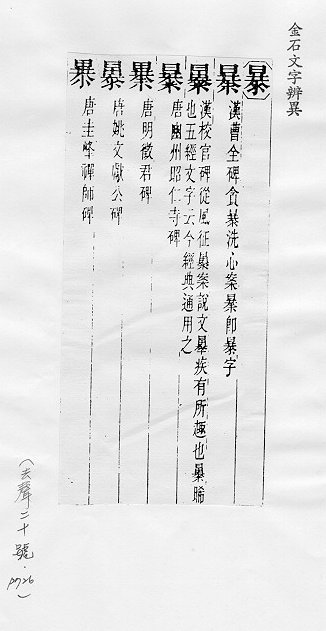 金石文字辨異
暴
暴 漢曹全碑貪暴洗心案暴卽暴字
暴 漢校官碑從風征暴案說文暴疾有所趣也暴晞
也五經文字云今經典通用之
暴 唐豳州昭仁寺碑
暴 唐明徵君碑
暴 唐姚文獻公碑
暴 唐圭峰禪師碑
(去聲二十號．p726)